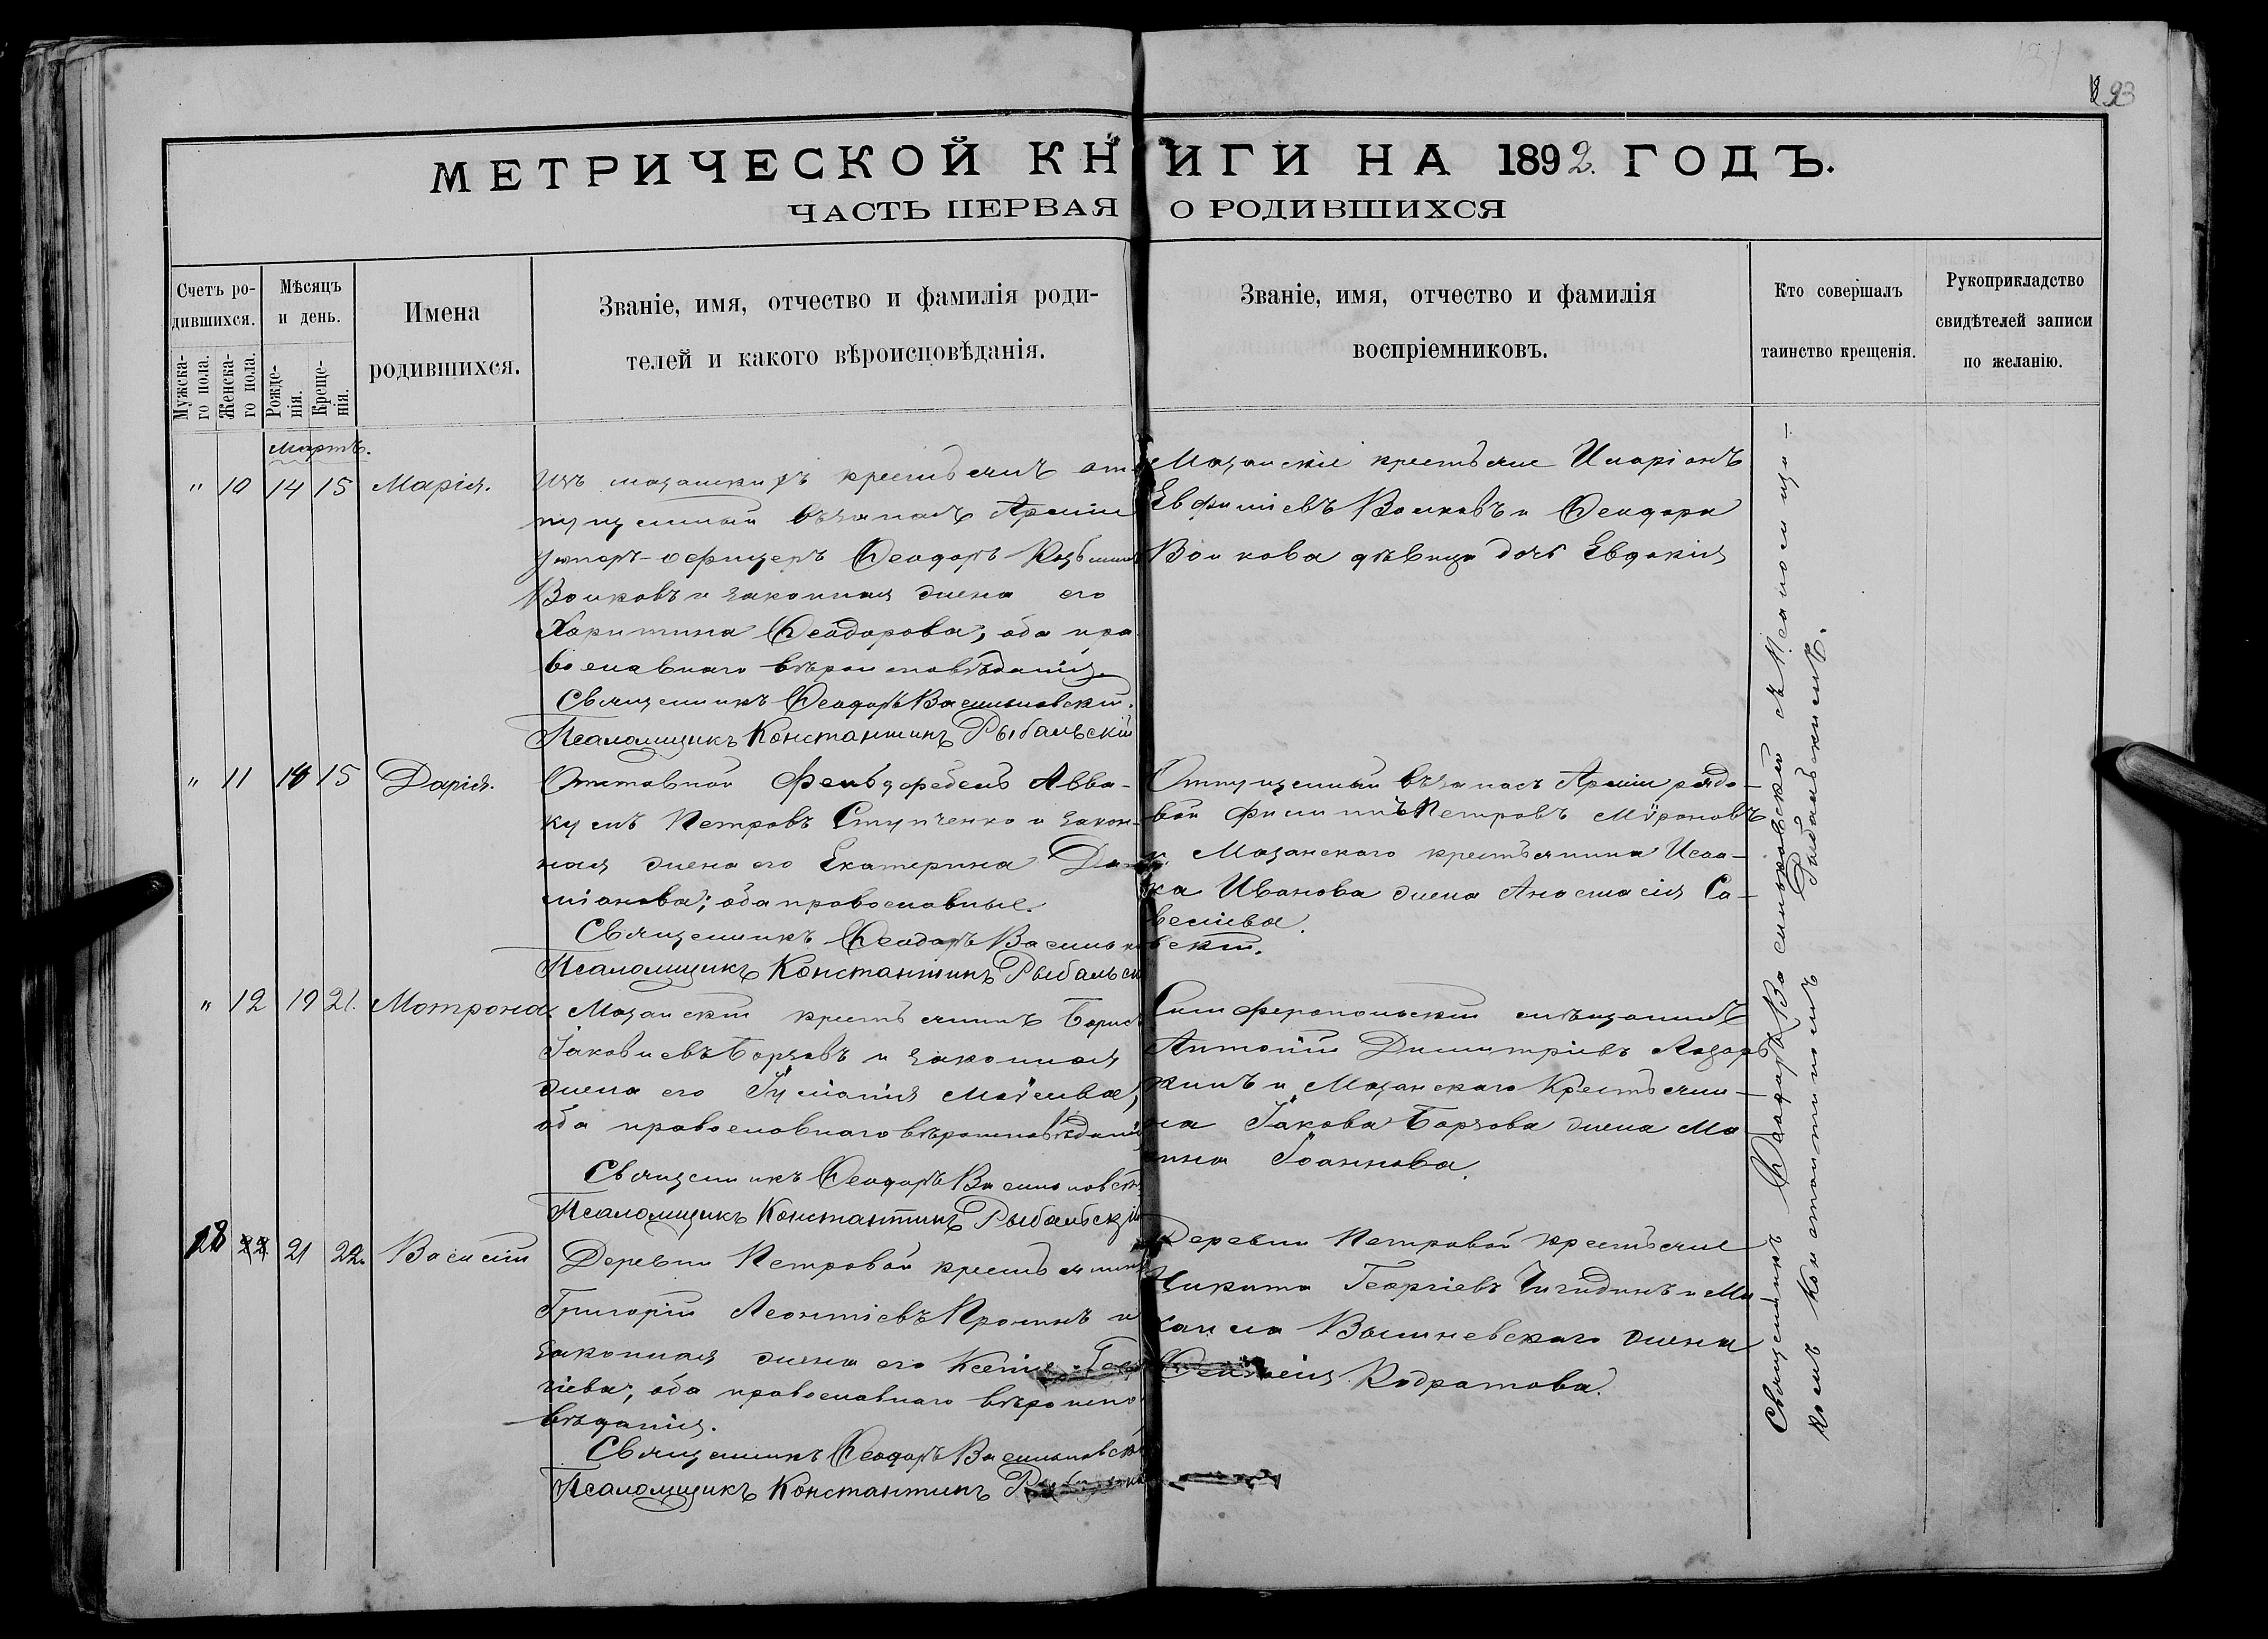 93
МЕТРИЧЕСКОЙ КНИГИ НА 1892. ГОДЪ.
ЧАСТЬ ПЕРВАЯ О РОДИВШИХСЯ
Счетъ родившихся.
Мужскаго пола.
Женскаго пола.
Мѣсяцъ и день.
Рожденія.
Крещенія.
Имена
родившихся.
Званіе, имя, отчество и фамилія роди-
телей и какого вѣроисповѣданія.
Званіе, имя, отчество и фамилія
воспріемниковъ.
Кто совершалъ
таинство крещенія.
Рукоприкладство
свидѣтелей записи
по желанію.
Мартъ.
" 10 14 15 Марія.
Изъ мазанскихъ крестьянъ от-
пущенный въ запасъ Арміи
унтеръ-офицеръ Ѳеодоръ Козьминъ
Волковъ и законная жена его
Харитина Ѳеодорова, оба пра-
вославнаго вѣроисповѣданія.
Священникъ Ѳеодоръ Васильковскій.
Псаломщикъ Константинъ Рыбальскій
Мазанскіе крестьяне Иларіонъ
Евфиміевъ Волковъ и Ѳеодора
Волкова дѣвица дочь Евдокія
" 11 14 15 Дарія.
Отставной Фельдфебель Авва-
кумъ Петровъ Ступченко и закон-
ная жена его Екатерина Да-
міанова; оба православные.
Священникъ Ѳеодоръ Васильковскій.
Псаломщикъ Константинъ Рыбальск
Отпущенный въ запасъ Арміи рядо-
вой Филиппъ Петровъ Мѵроновъ
и Мазанскаго крестьянина Исаа-
ка Иванова жена Анастасія Са-
веліева.
" 12 19 21. Мотрона.
Мазанскій крестьянинъ Борисъ
Іаковлевъ Борзовъ и законная
жена его Іуліанія Моисеева,
оба православнаго вѣроисповѣданія
Священникъ Ѳеодоръ Васильковск
Псаломщикъ Константинъ Рыбальскій
Симферопольскій мѣщанинъ
Антоній Димитріевъ Лазар-
кинъ и Мазанскаго Крестьяни-
на Іакова Борзова жена Ма-
рина Іоаннова.
21 22. Василій
Деревни Петровой крестьянинъ
Григорій Леонтіевъ Пронинъ и
законная жена его Ксенія Геор-
гіева, оба православнаго вѣроиспо-
вѣданія.
Священникъ Ѳеодоръ Васильковск
Псаломщикъ Константинъ
Деревни Петровой крестьяне
Никита Георгіевъ Чигидинъ и Ми-
хаила Вышневскаго жена
Кодратова.
Священникъ Ѳеодоръ Васильковскій съ Псаломщи-
комъ Константиномъ Рыбальскимъ.